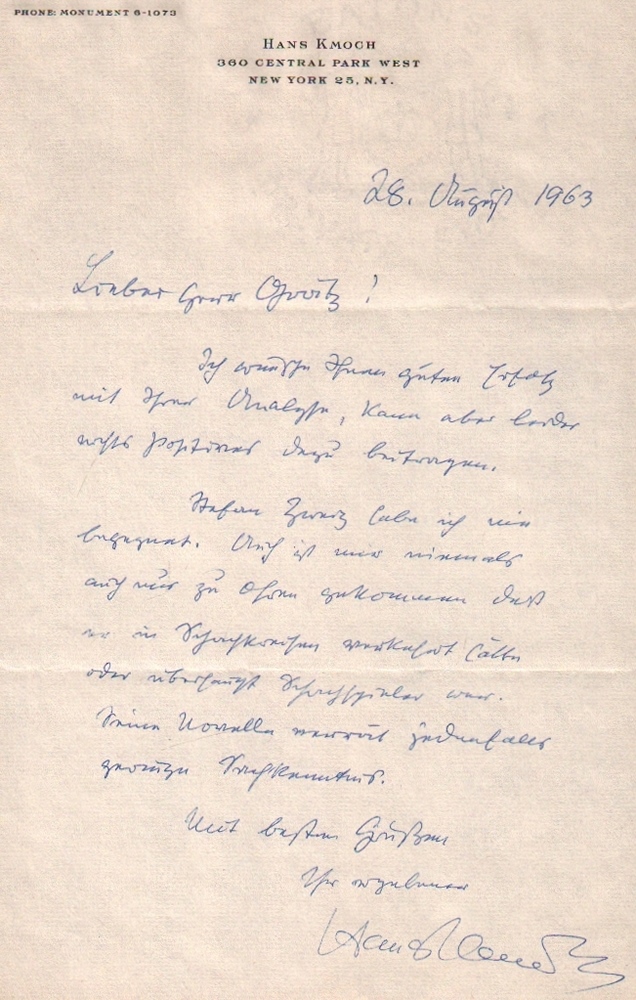 PHONE: MONUMENT 6-1073
HANS KMOCH
360 CENTRAL PARK WEST
NEW YORK 25, N.Y.
28. August 1963
Lieber Herr !
Ich wünsche Ihnen guten Erfolg
mit Ihrer Analyse, kann aber leider
nichts Positives dazu beitragen.
Stefan Zweig habe ich nie
begegnet. Auch ist mir niemals
auch nur zu Ohren gekommen daß
er in Schachkreisen verkehrt hätte
oder überhaupt Schachspieler war.
Seine Novelle verrät jedenfalls
geringe Sachkenntnis.
Mit besten Grüßen
Ihr ergebener
Hans Kmoch